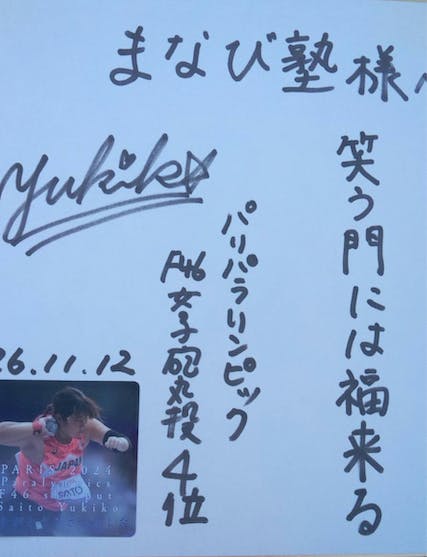 まなび塾様へ
笑う門には福来る
パリパラリンピック
F46女子砲丸投4位
Yukiko
26.11.12
JAPAN
SAITO
PARIS 2024
Paralympics
F46 shot put
Saito Yukiko